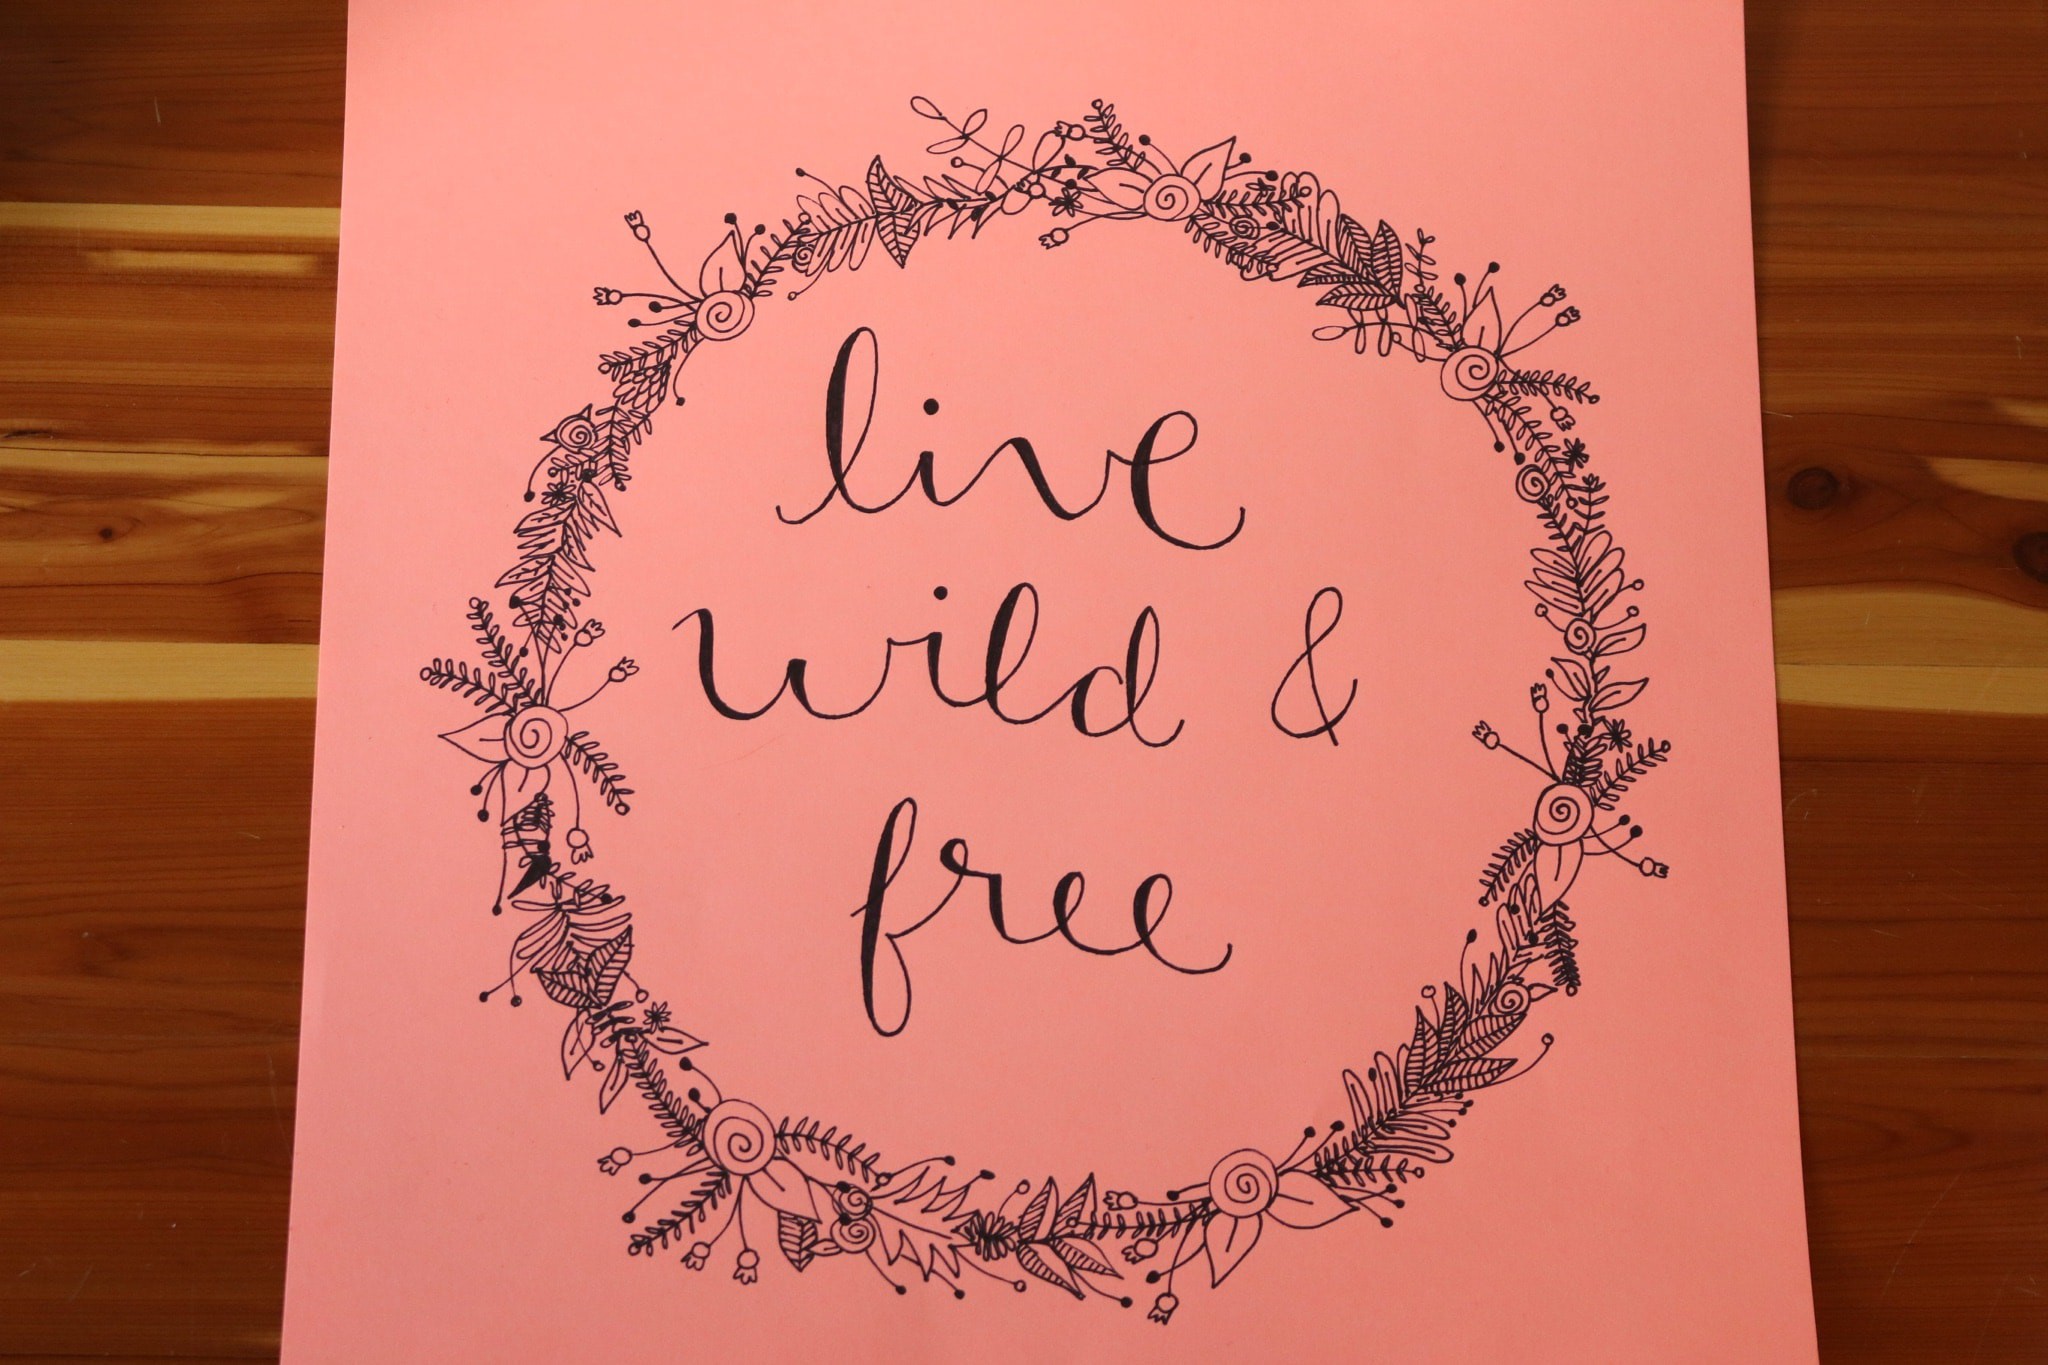 live
wild &
free